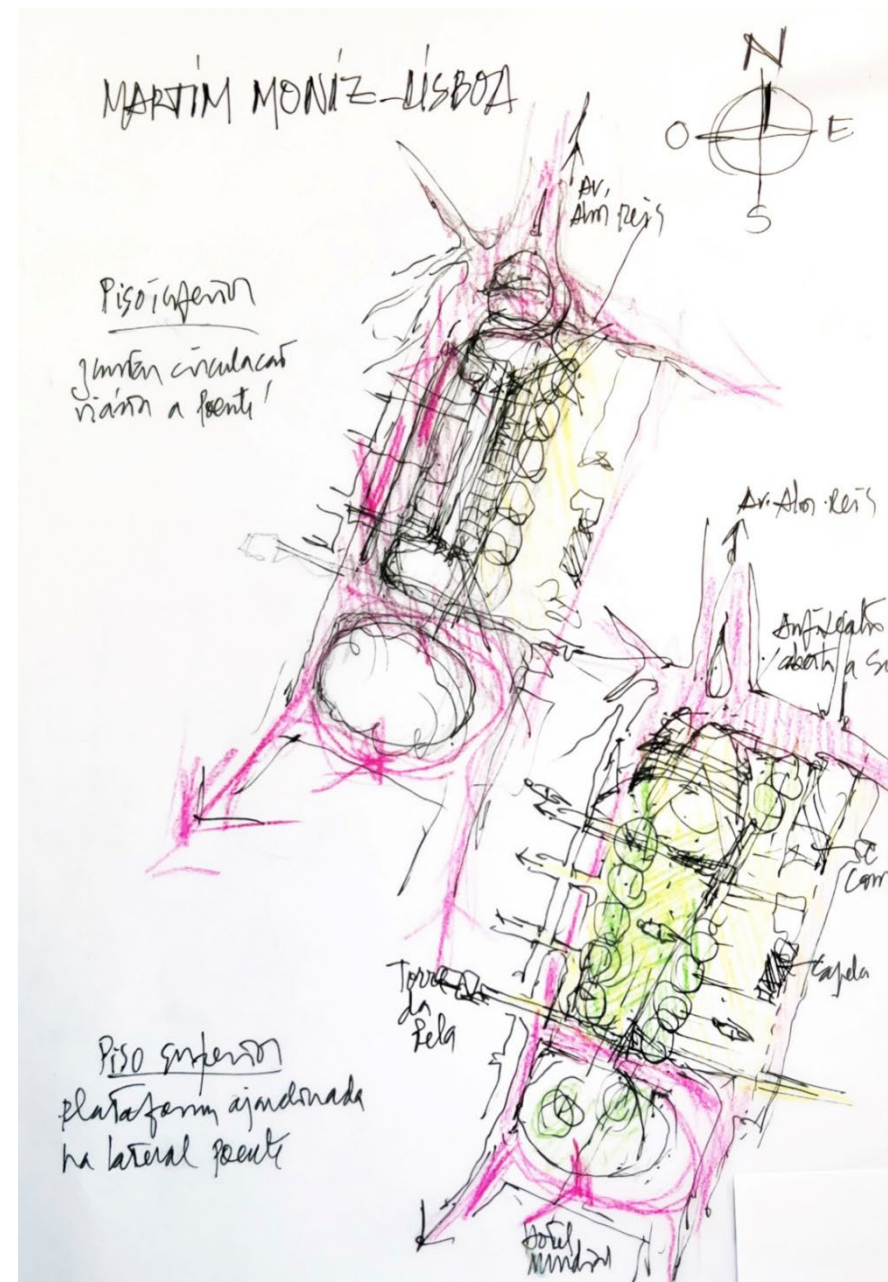 MARTIM MONIZ-LISBOA
N
O E
S
Av.
Alm Reis
Piso inferior
juntar circulação
viária a poente!
Av. Alm. Reis
Anfiteatro
aberto a Su
Torre
da
Pela
Capela
Piso superior
plataforma ajardinada
na lateral poente
Hotel
Mundial